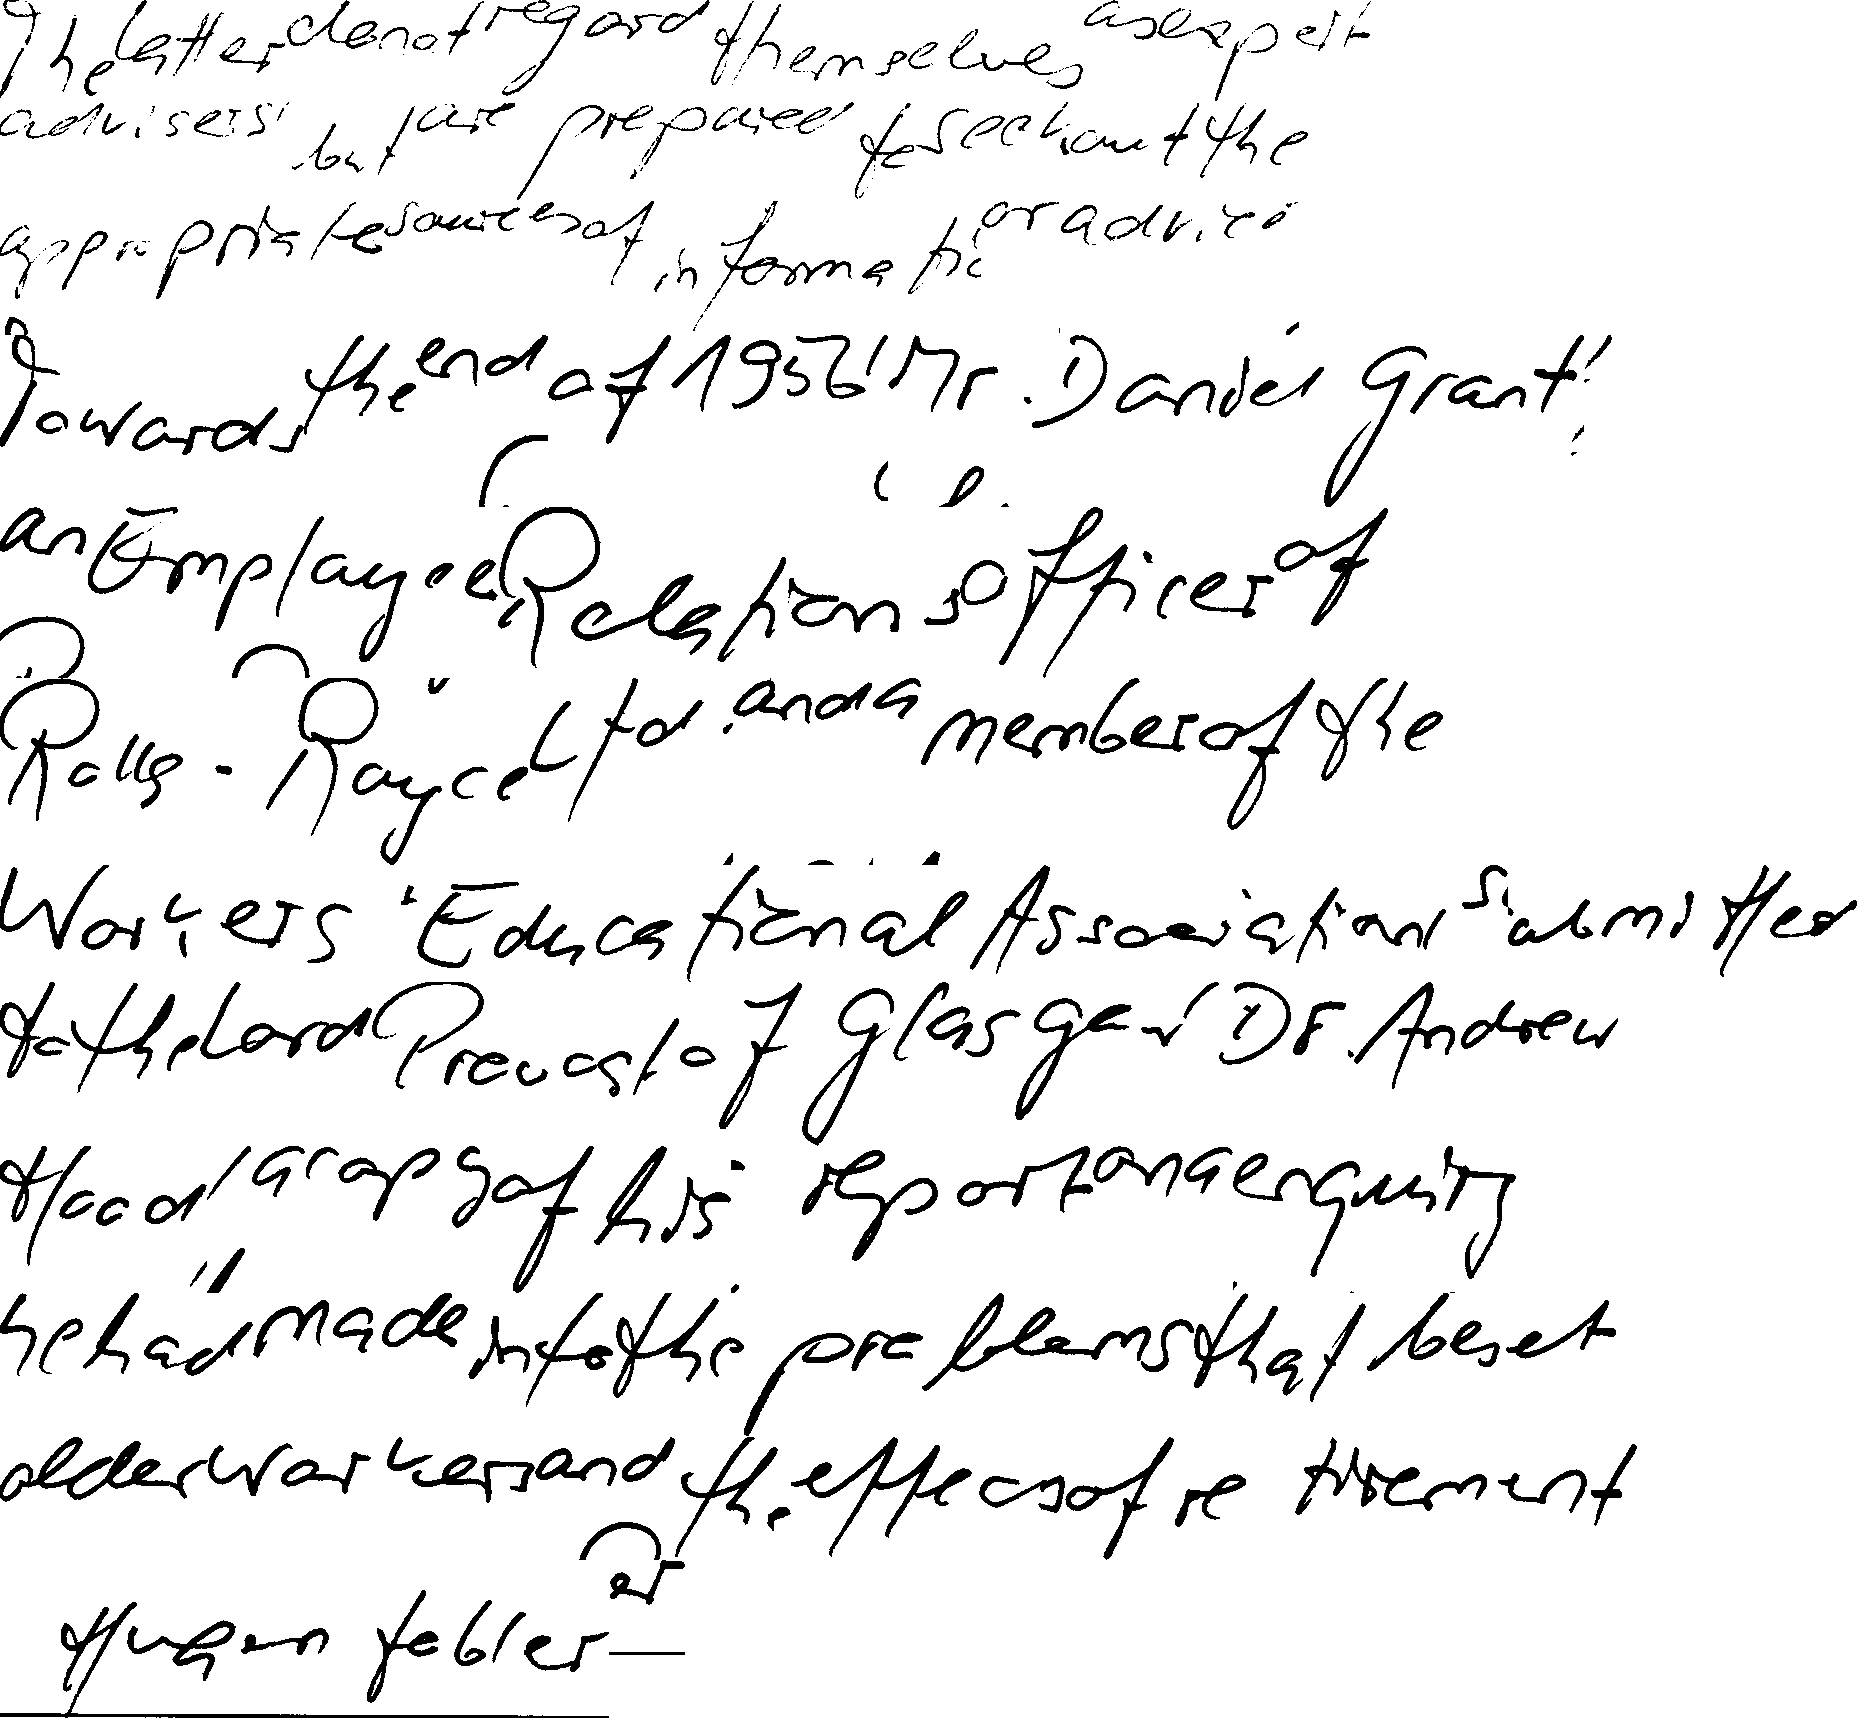 The latter do not regard themselves as expert
advisers, but are prepared to seek out the
appropriate sources of informatio or advice
Towards the end of 1956, Mr. Daniel Grant,
an Employee Relations Officer of
Rolls-Royce Ltd. and a member of the
Workers' Educational Association submitted
to the Lord Provost of Glasgow, Dr. Andrew
Hood, a copy of his report on an enquiry
he had made into the problems that beset
older workers and the effects of retirement